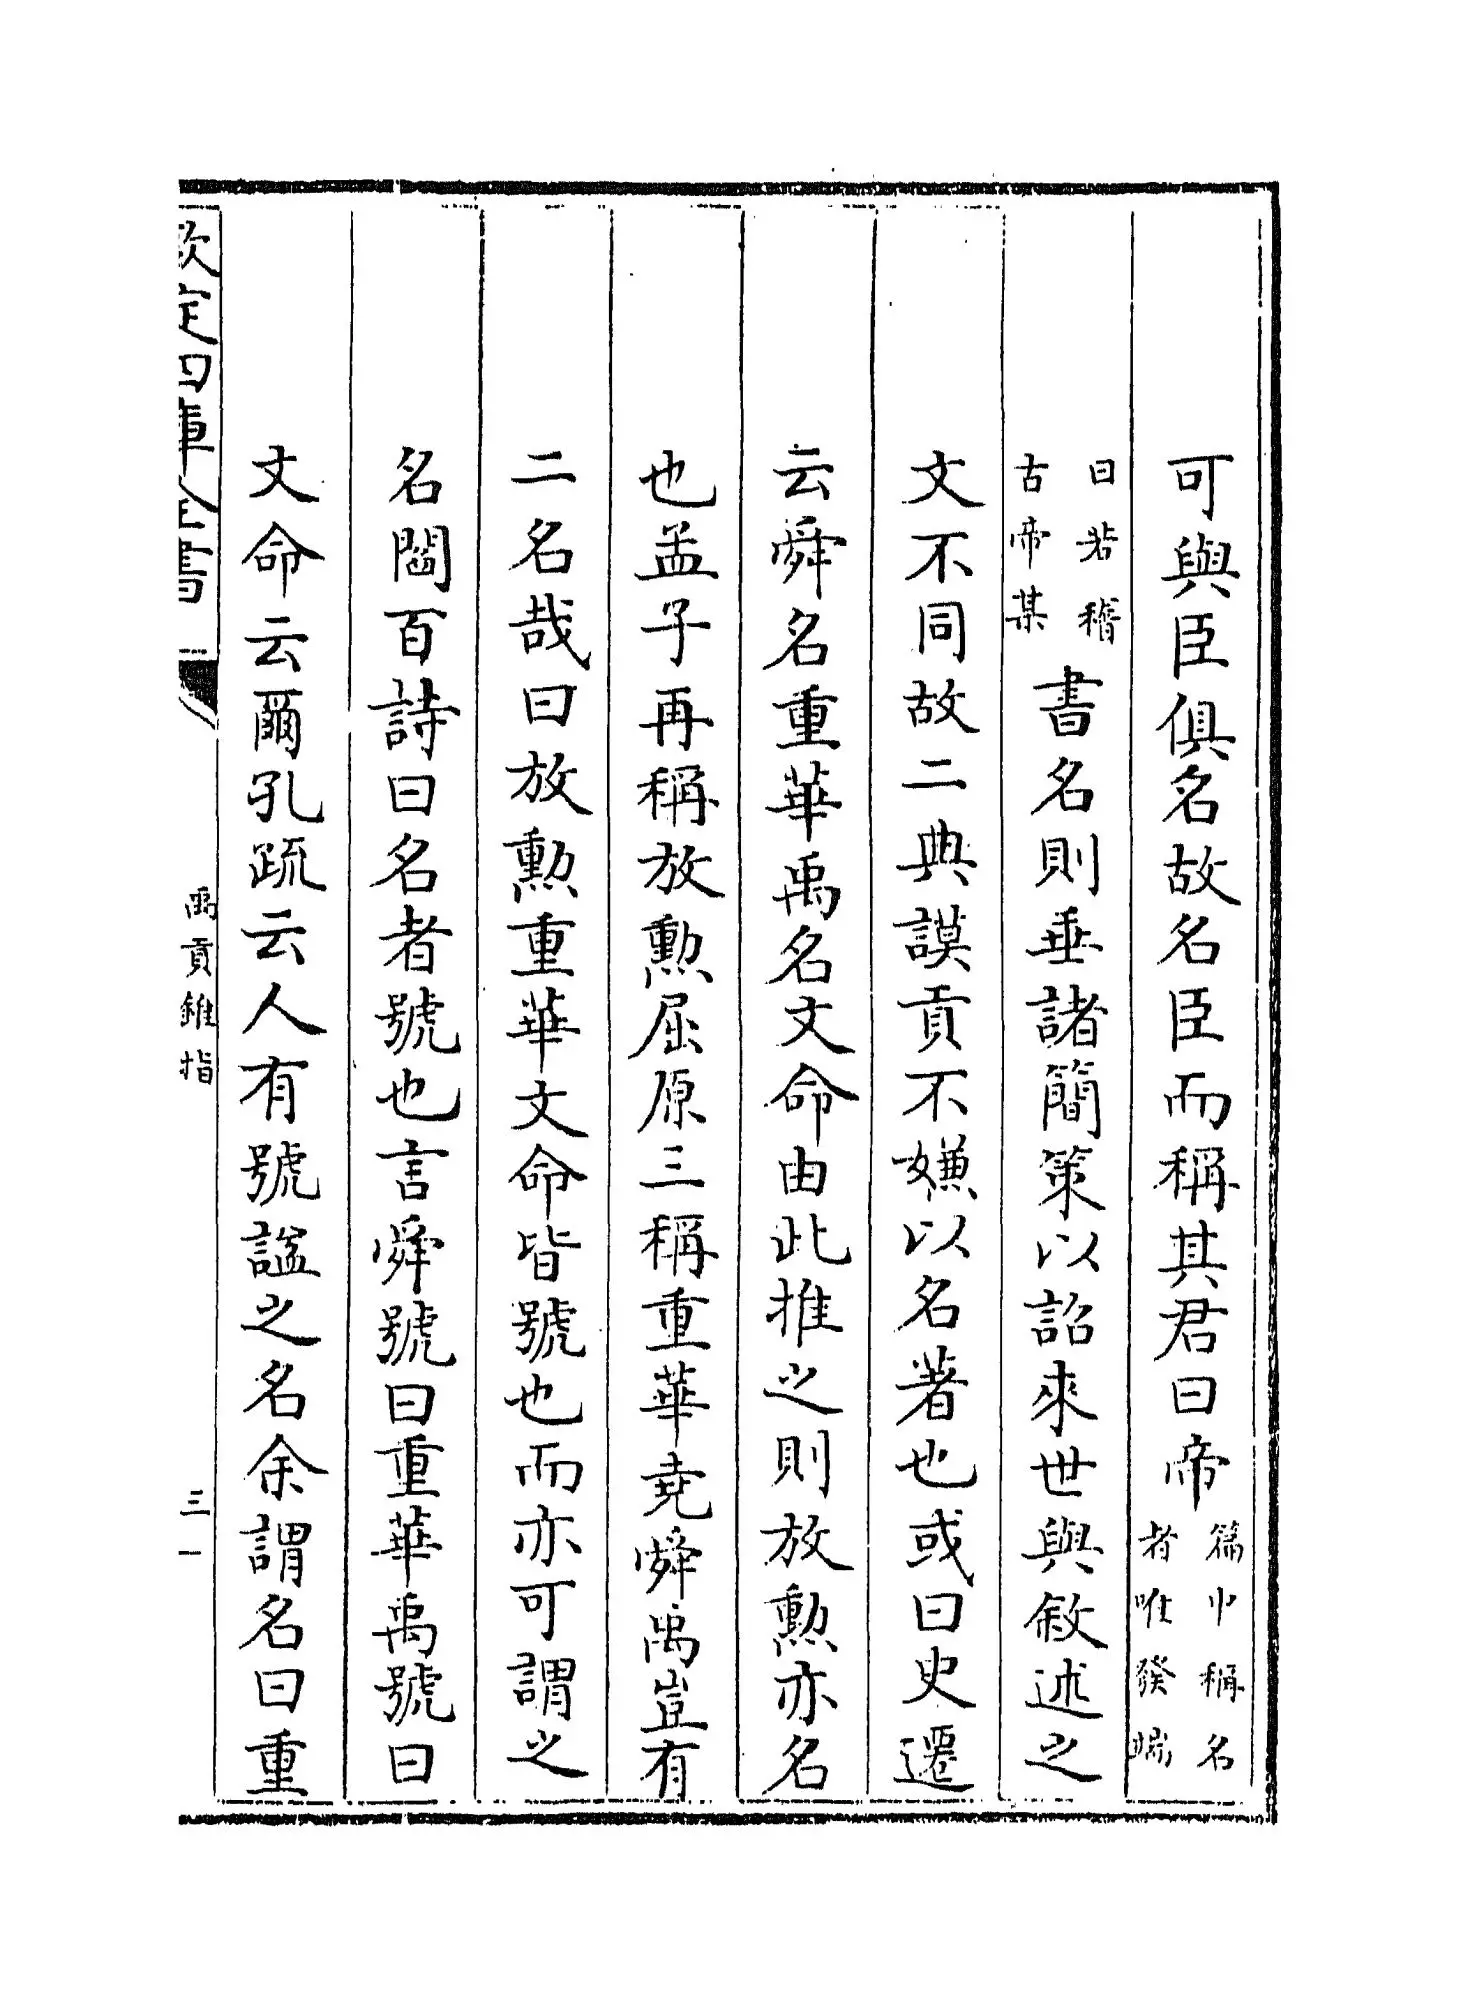 可與臣俱名故名臣而稱其君曰帝篇中稱名者唯發端
曰若稽古帝某書名則垂諸簡策以詔來世與敘述之
文不同故二典謨貢不嫌以名著也或曰史遷
云舜名重華禹名文命由此推之則放勲亦名
也孟子再稱放勲屈原三稱重華堯舜禹豈有
二名哉曰放勲重華文命皆號也而亦可謂之
名閻百詩曰名者號也言舜號曰重華禹號曰
文命云爾孔疏云人有號諡之名余謂名曰重
欽定四庫全書
禹貢錐指
三一